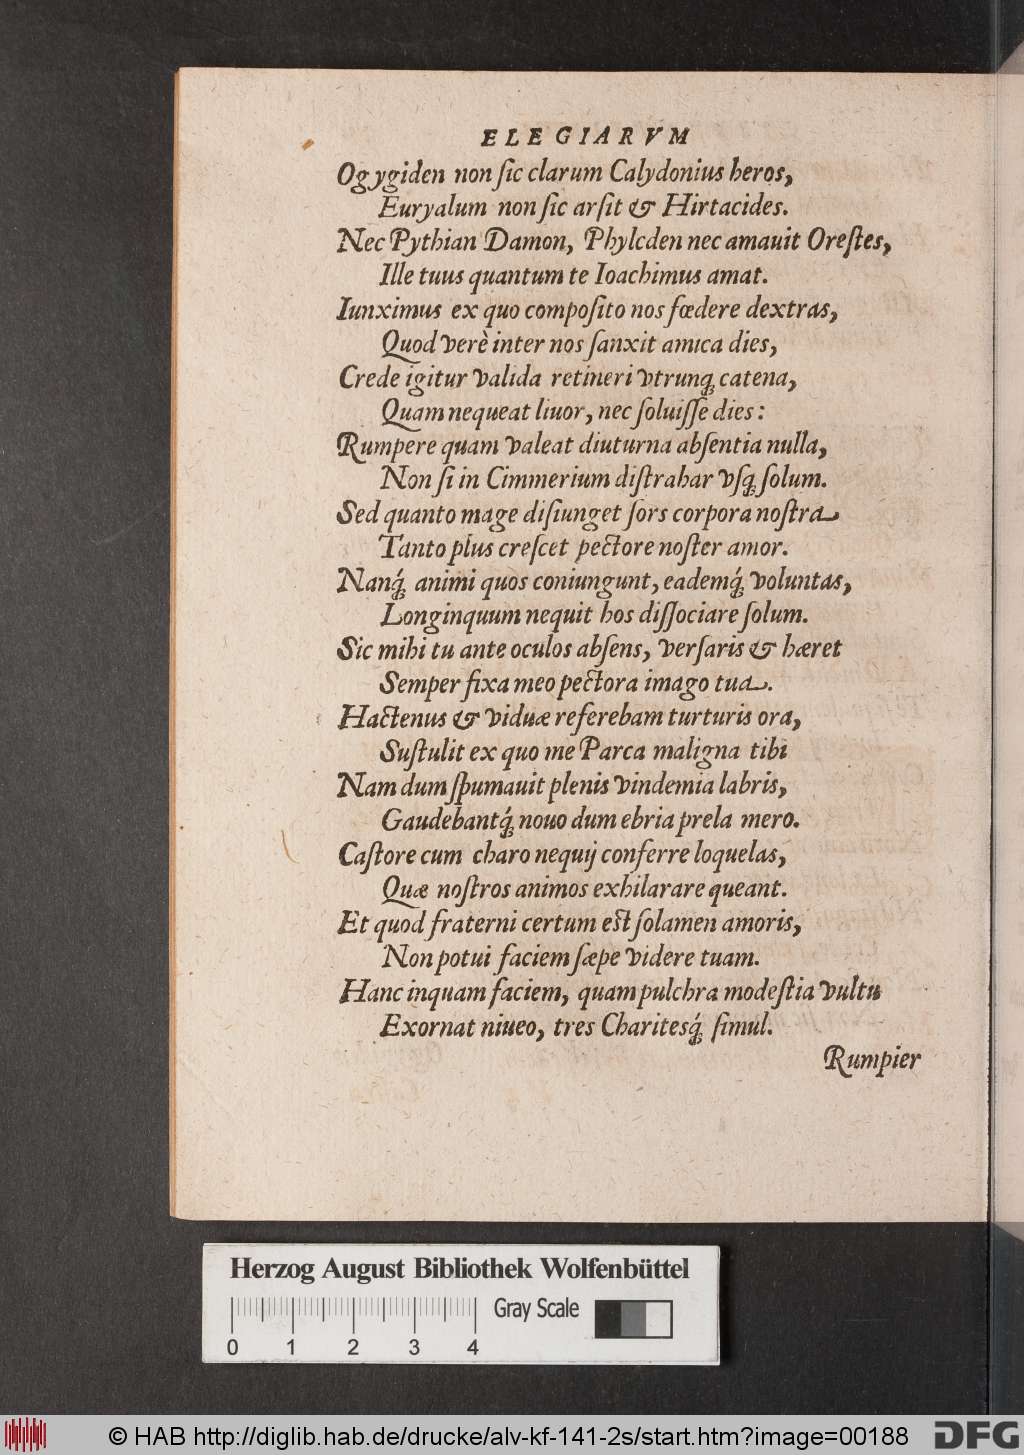 ELEGIARVM
Ogygiden non ſic clarum Calydonius heros,
Euryalum non ſic arſit & Hirtacides.
Nec Pythian Damon, Phylcden nec amauit Oreſtes,
Ille tuus quantum te Ioachimus amat.
Iunximus ex quo compoſito nos fœdere dextras,
Quod verè inter nos ſanxit amica dies,
Crede igitur valida retineri vtrunq́; catena,
Quam nequeat liuor, nec ſoluiſſe dies:
Rumpere quam valeat diuturna abſentia nulla,
Non ſi in Cimmerium diſtrahar vſq́; ſolum.
Sed quanto mage diſiunget ſors corpora noſtra
Tanto plus creſcet pectore noſter amor.
Nanq́; animi quos coniungunt, eademq́; voluntas,
Longinquum nequit hos diſſociare ſolum.
Sic mihi tu ante oculos abſens, verſaris & hæret
Semper fixa meo pectora imago tua.
Hactenus & viduæ referebam turturis ora,
Suſtulit ex quo me Parca maligna tibi
Nam dum ſpumauit plenis vindemia labris,
Gaudebantq́; nouo dum ebria prela mero.
Caſtore cum charo nequij conferre loquelas,
Quæ noſtros animos exhilarare queant.
Et quod fraterni certum eſt ſolamen amoris,
Non potui faciem ſæpe videre tuam.
Hanc inquam faciem, quam pulchra modeſtia vultu
Exornat niueo, tres Charitesq́; ſimul.
Rumpier
Herzog August Bibliothek Wolfenbüttel
Gray Scale
0 1 2 3 4
© HAB http://diglib.hab.de/drucke/alv-kf-141-2s/start.htm?image=00188
DFG